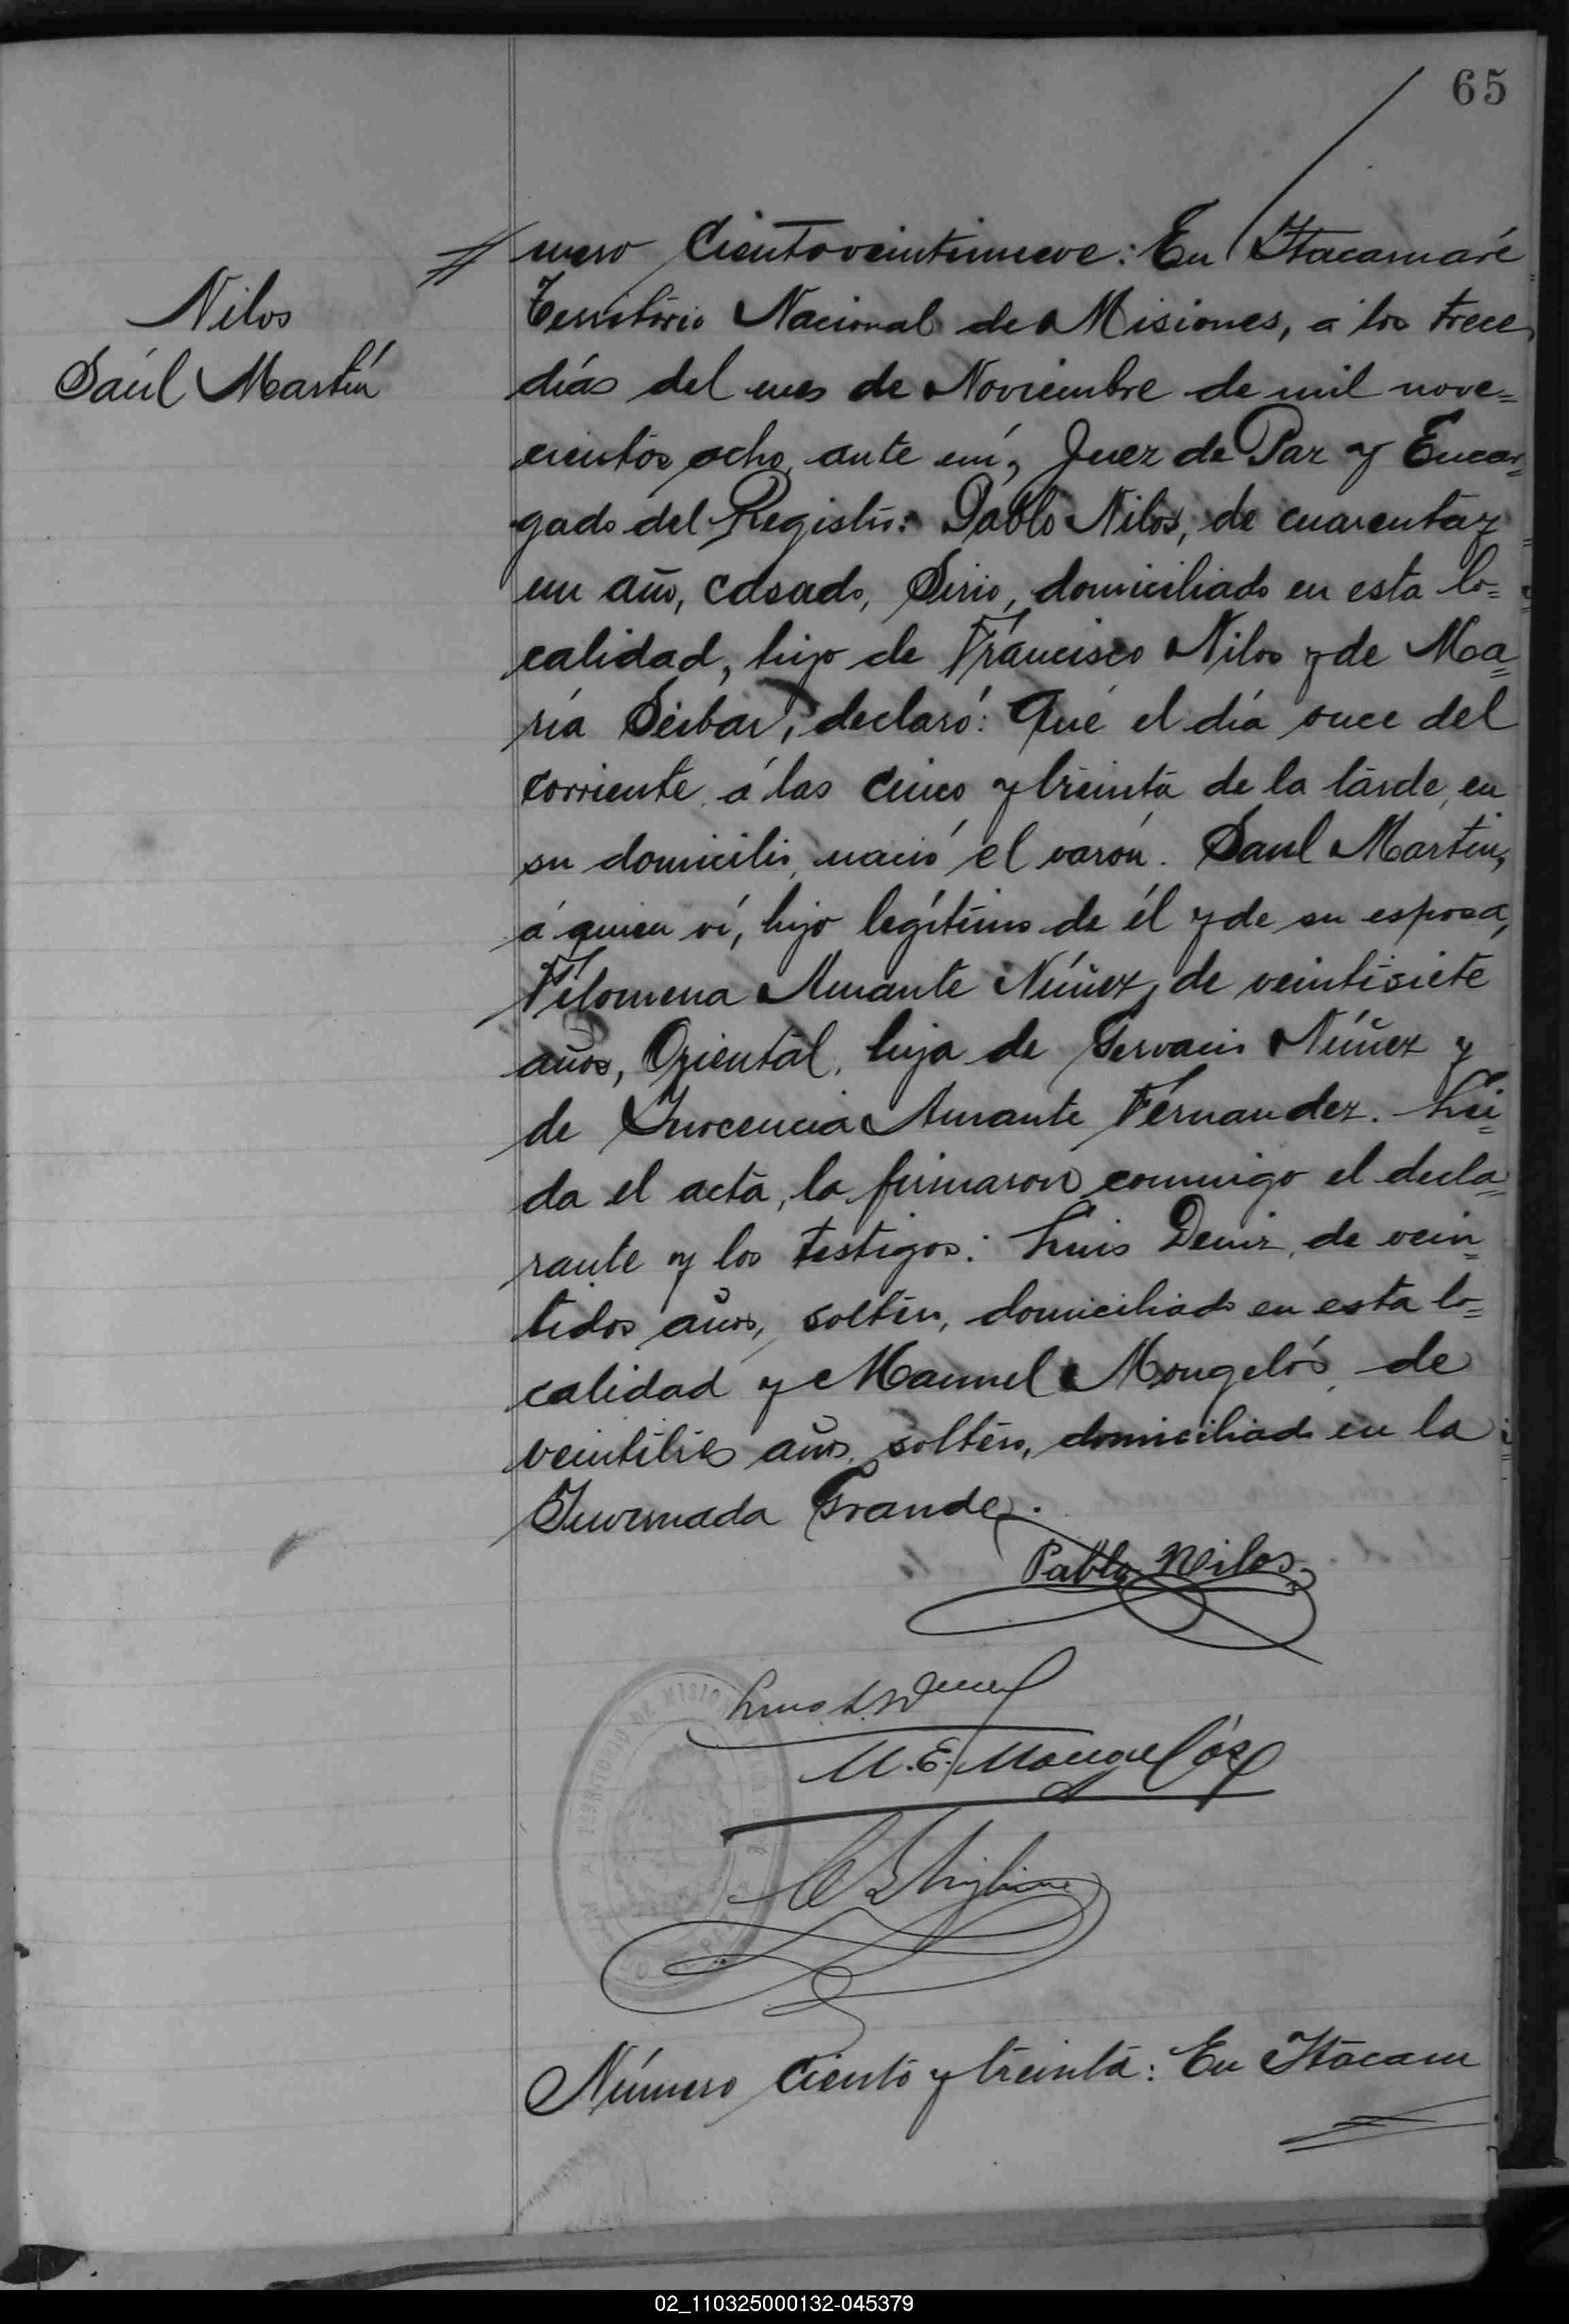 65
Nilos
Saúl Martín
mero Cientoveintinueve: En Itacaruaré
Territorio Nacional de Misiones, a los trece
días del mes de Noviembre de mil nove=
cientos ocho, ante mí, Juez de Paz y Encar=
gado del Registro: Pablo Nilos, de cuarenta y
un año, casado, Sirio, domiciliado en esta lo=
calidad, hijo de Francisco Nilos y de Ma=
ría, declaró: Que el día once del
corriente á las cinco y treinta de la tarde, en
su domicilio, nació el varón. Saul Martin,
á quien ví, hijo legítimo de él y de su esposa,
Filomena Amante Núñez, de veintisiete
años, Oriental, hija de Gervacio Núñez y
de Inocencia Amante Fernandez. Leí=
da el acta, la firmaron conmigo el decla=
rante y los testigos: Luis Deniz, de vein=
tidos años, soltero, domiciliado en esta lo=
calidad y Manuel Mongelós, de
veintitres años, soltero, domiciliado en la
Invernada Grande.
Pablo Nilos
M. E. Mongelós
TERRITORIO DE MISIONES
Número Ciento y treinta: En Itacaru
02_110325000132-045379